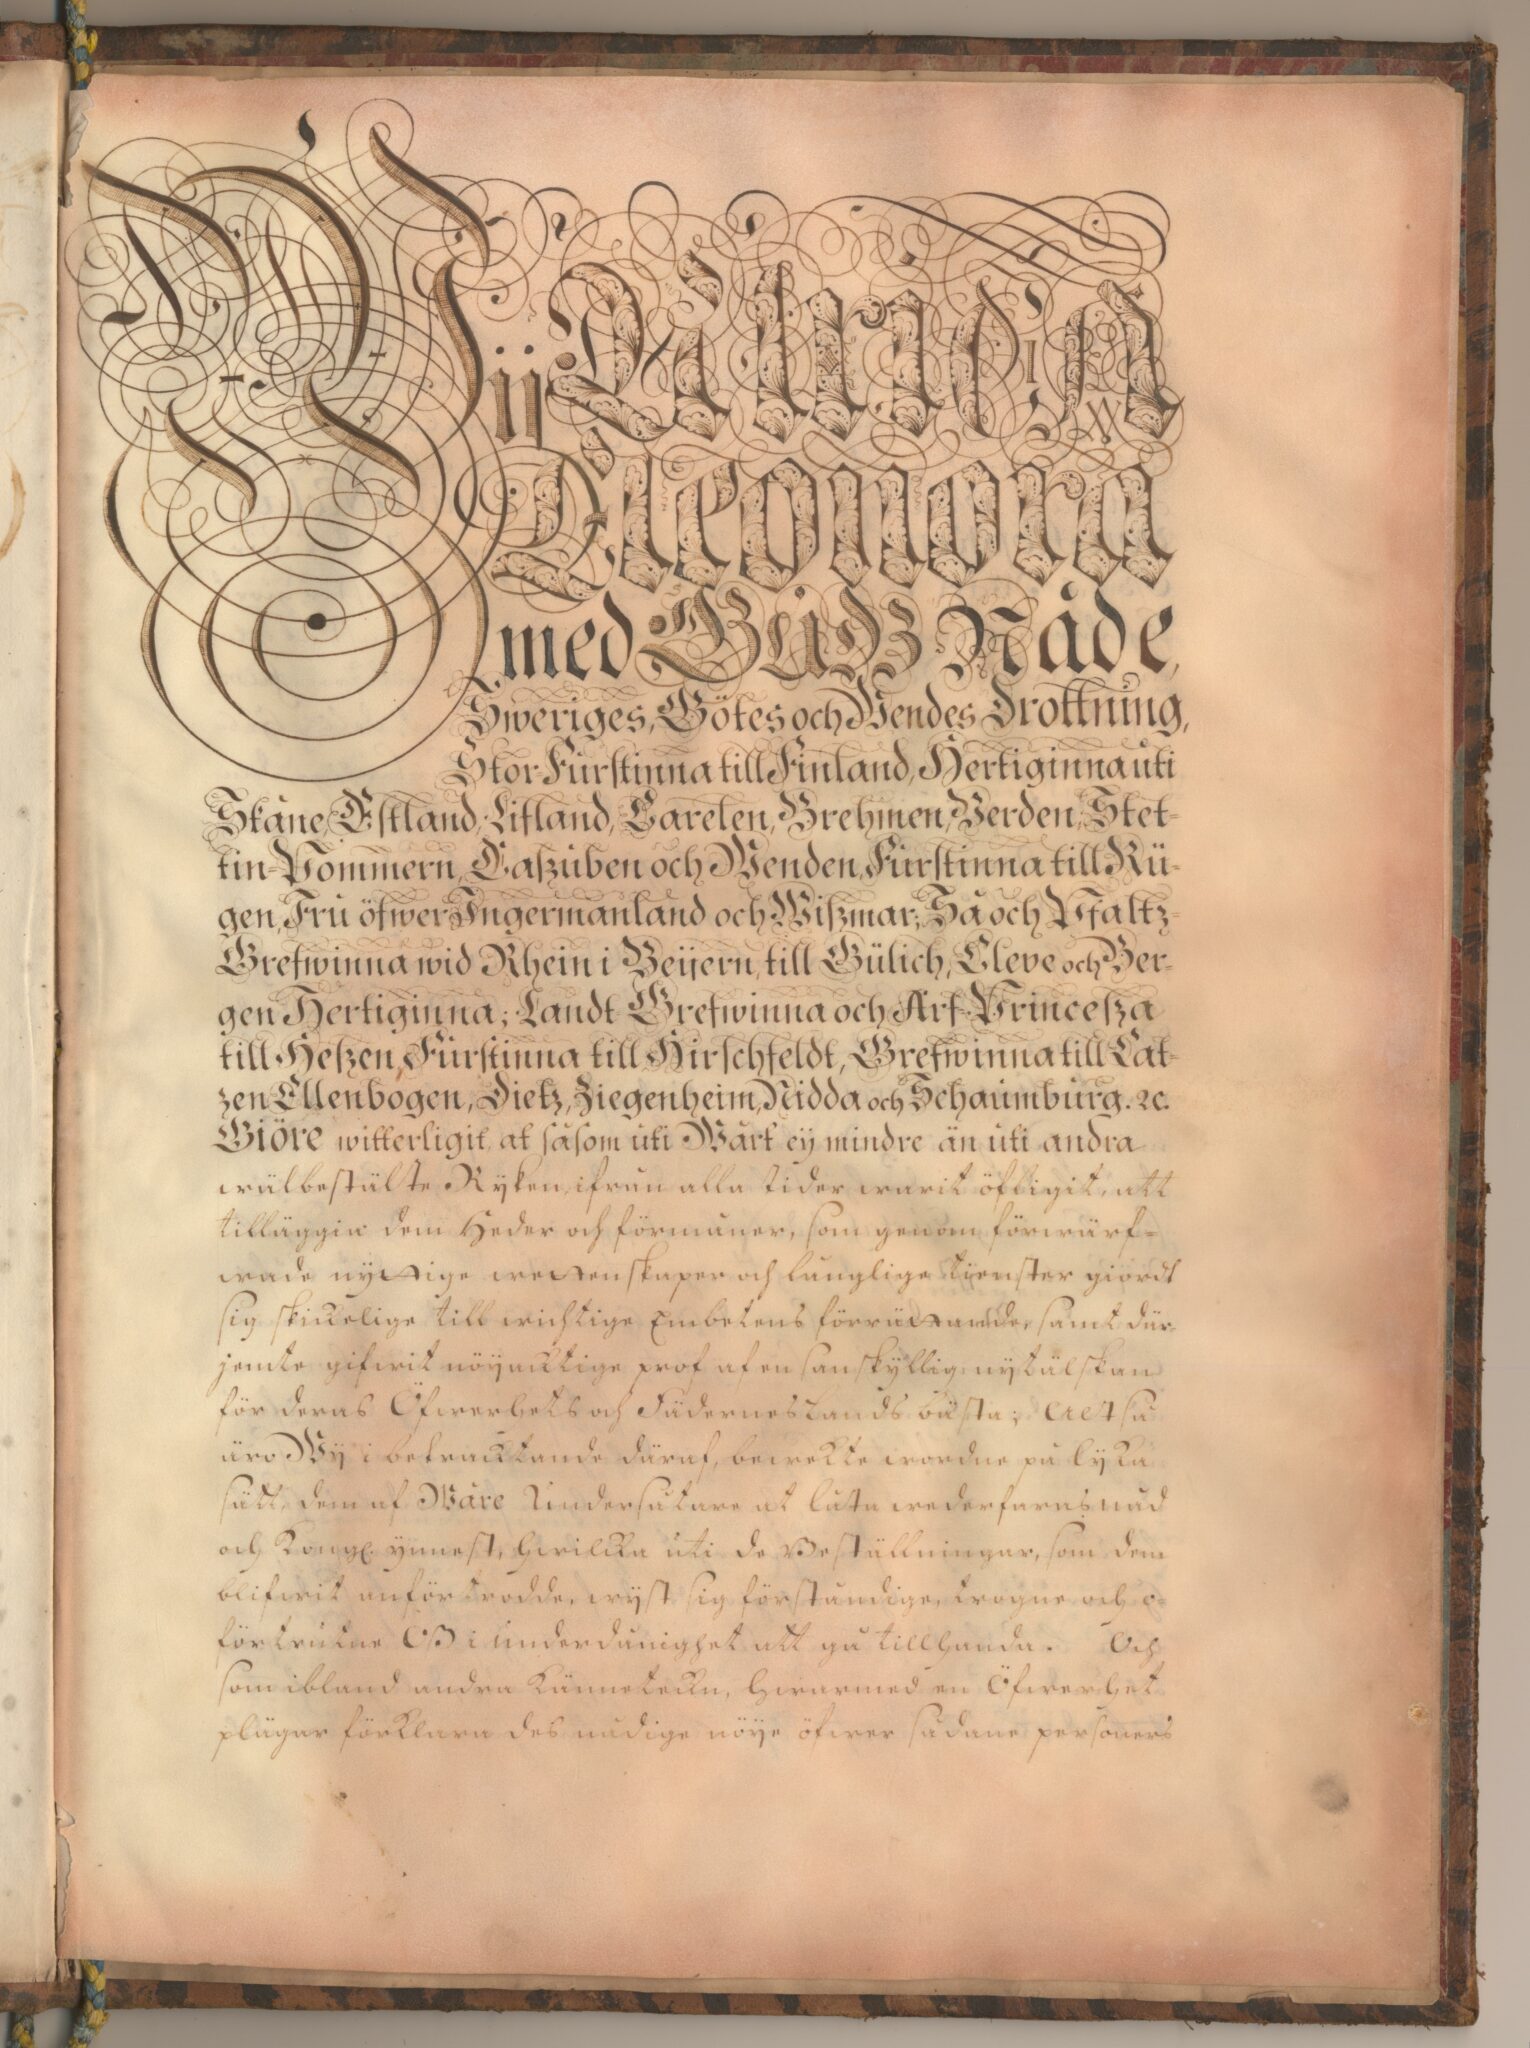 Wij Ulrica
Eleonora
med Gudz Nåde,
Sweriges, Götes och Wendes Drottning,
Stor-Furstinna till Finland, Hertiginna uti
Skåne, Estland, Lifland, Carelen, Brehmen, Verden, Stet-
tin-Pommern, Caszuben och Wenden, Furstinna till Rü-
gen, Fru öfwer Ingermanland och Wiszmar; Så och Pfaltz-
Grefwinna wid Rhein i Beijern, till Gülich, Cleve och Ber-
gen Hertiginna; Landt-Grefwinna och Arf-Princesza
till Heszen, Furstinna till Hirschfeldt, Grefwinna till Cat-
zen Ellenbogen, Dietz, Ziegenheim, Nidda och Schaumburg. &c.
Giöre witterligit, at såsom uti Wårt eij mindre än uti andra
wälbestälte Ryken, ifrån alla tider warit öfligit, att
tilläggia dem Heder och förmåner, som genom förwärf-
wade nyttige wettenskaper och långlige tienster giordt
sig skickelige till wichtige Embetens förrättande, samt där-
jemte gifwit nöyacktige prof af en sanskyllig nytälskan
för deras Öfwerhets och Fäderneslands bästa; Altså
äro Wy i betracktande däraf, bewekte wordne på lyka
sätt, dem af Wåre Undersåtare at låta wederfaras nåd
och Kongl. ynnest, hwilcka uti de Beställningar, som dem
blifwit anförtrodde, wyst sig förståndige, trogne och o-
förtrutne Oß i underdånighet att gå tillhanda. Och
som ibland andra Känneteckn, hwarmed en Öfwerhet
plägar förklara des nådige nöye öfwer sådane personers